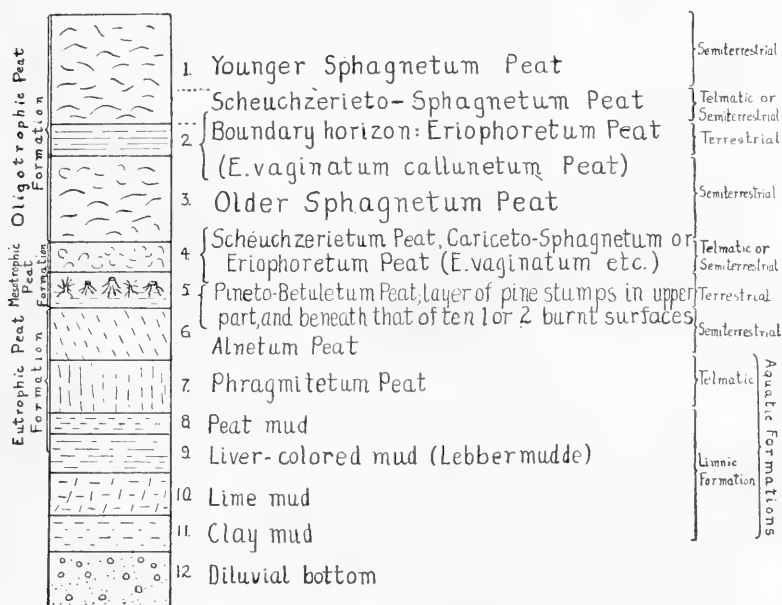 Oligotrophic Peat
Formation
Mesotrophic
Peat
Formation
Eutrophic Peat
Formation
1. Younger Sphagnetum Peat
Scheuchzerieto-Sphagnetum Peat
2. Boundary horizon: Eriophoretum Peat
(E.vaginatum callunetum Peat)
3. Older Sphagnetum Peat
4. Scheuchzerietum Peat, Cariceto-Sphagnetum or
Eriophoretum Peat (E.vaginatum etc.)
5. Pineto-Betuletum Peat, layer of pine stumps in upper
part, and beneath that often 1 or 2 burnt surfaces
6. Alnetum Peat
7. Phragmitetum Peat
8. Peat mud
9. Liver-colored mud (Lebbermudde)
10. Lime mud
11. Clay mud
12. Diluvial bottom
Semiterrestrial
Telmatic or
Semiterrestrial
Terrestrial
Semiterrestrial
Telmatic or
Semiterrestrial
Terrestrial
Semiterrestrial
Telmatic
Limnic
Formation
Aquatic Formations